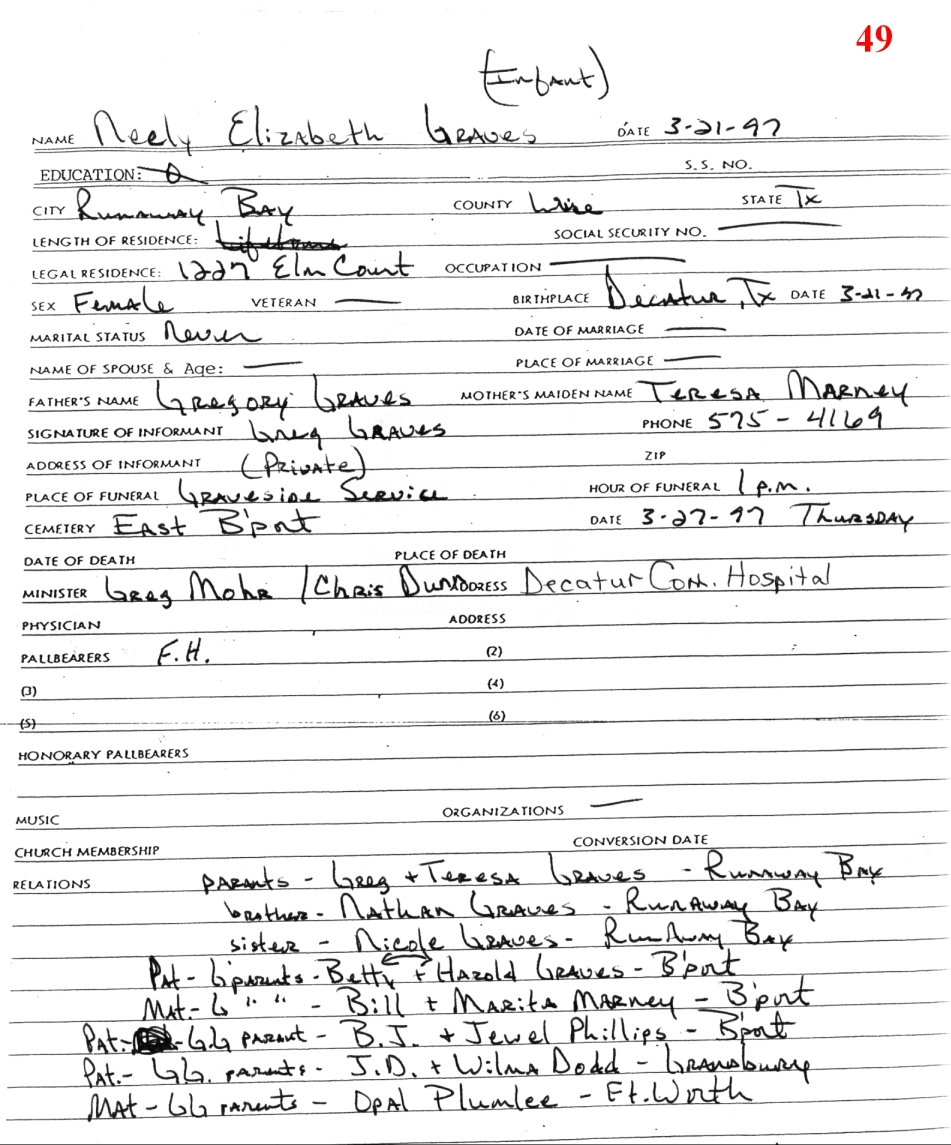 49
(Infant)
NAME Neely Elizabeth Graves DATE 3-21-97
EDUCATION: 0 S.S. NO.
CITY Runaway Bay COUNTY Wise STATE Tx
LENGTH OF RESIDENCE: Lifetime SOCIAL SECURITY NO. —
LEGAL RESIDENCE: 1227 Elm Court OCCUPATION —
SEX Female VETERAN — BIRTHPLACE Decatur, Tx DATE 3-21-97
MARITAL STATUS Never DATE OF MARRIAGE —
NAME OF SPOUSE & Age: — PLACE OF MARRIAGE —
FATHER'S NAME Gregory Graves MOTHER'S MAIDEN NAME Teresa Marney
SIGNATURE OF INFORMANT Greg Graves PHONE 575-4169
ADDRESS OF INFORMANT (Private) ZIP
PLACE OF FUNERAL Graveside Service HOUR OF FUNERAL 1 p.m.
CEMETERY East B'port DATE 3-27-97 Thursday
DATE OF DEATH PLACE OF DEATH
MINISTER Greg Mohr / Chris Dunn ADDRESS Decatur Com. Hospital
PHYSICIAN ADDRESS
PALLBEARERS F.H. (2)
(3) (4)
(5) (6)
HONORARY PALLBEARERS
MUSIC ORGANIZATIONS —
CHURCH MEMBERSHIP CONVERSION DATE
RELATIONS parents - Greg + Teresa Graves - Runaway Bay
brother - Nathan Graves - Runaway Bay
sister - Nicole Graves - Runaway Bay
Pat - G'parents - Betty + Harold Graves - B'port
Mat - G " " - Bill + Marita Marney - B'port
Pat. - GG parent - B.J. + Jewel Phillips - B'port
Pat. - GG. parents - J.D. + Wilma Dodd - Gransbury
Mat - GG parents - Opal Plumlee - Ft. Worth